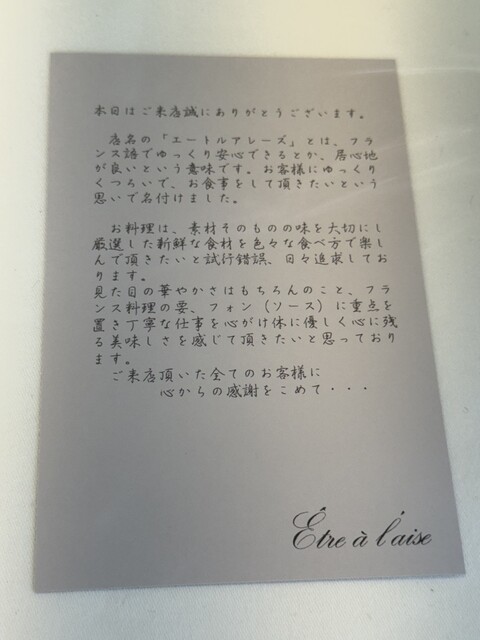 本日はご来店誠にありがとうございます。
店名の「エートルアレーズ」とは、フラ
ンス語でゆっくり安心できるとか、居心地
が良いという意味です。お客様にゆっくり
くつろいで、お食事をして頂きたいという
思いで名付けました。
お料理は、素材そのものの味を大切にし
厳選した新鮮な食材を色々な食べ方で楽し
んで頂きたいと試行錯誤、日々追求してお
ります。
見た目の華やかさはもちろんのこと、フラ
ンス料理の要、フォン（ソース）に重点を
置き丁寧な仕事を心がけ体に優しく心に残
る美味しさを感じて頂きたいと思っており
ます。
ご来店頂いた全てのお客様に
心からの感謝をこめて・・・
Être à l'aise